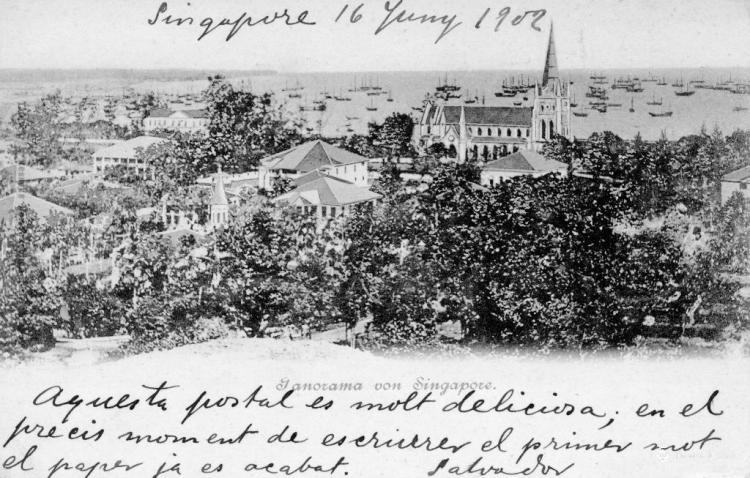 Singapore 16 Juny 1902
Panorama von Singapore.
Aquesta postal es molt deliciosa; en el
précis moment de escriurer el primer mot
el paper ja es acabat. Salvador